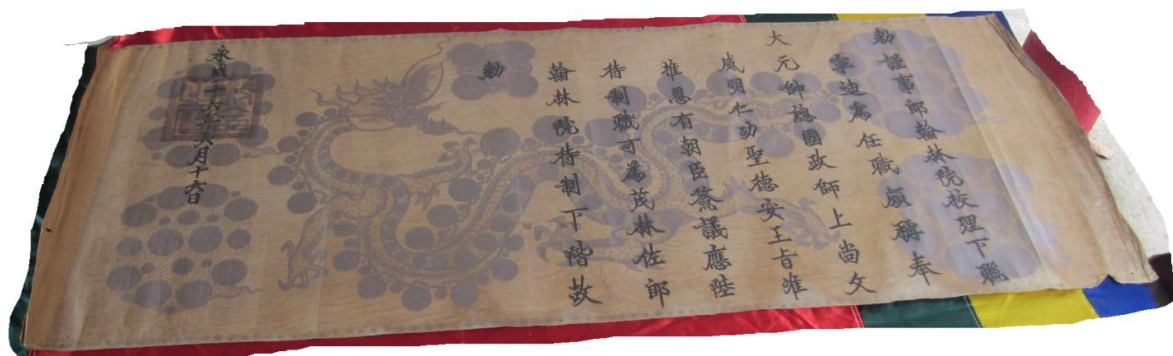 勅謹事郎翰林院校理下聯
寧迪為任職頗稱奉
大元帥總國政師上尚父
威明仁功聖德安王旨准
推恩有朝臣僉議應陞
待制職可為茂林佐郎
翰林院待制下階故
勅
永盛十六年六月十六日